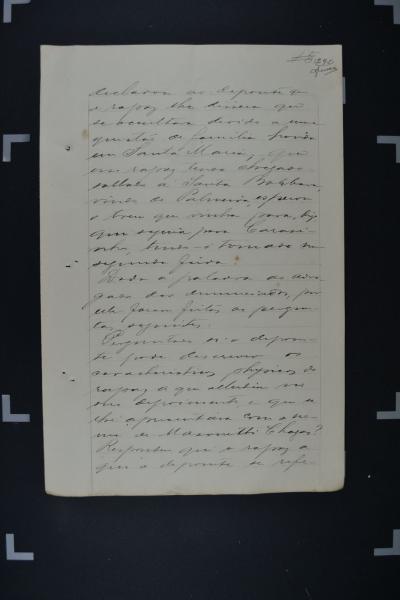 declarou ao depoente q
o rapaz lhe dissera que
se occultava devido a uma
questão de familia havida
em Santa Maria, que
esse rapaz havia chegado
a Santa Barbara,
vindo de Palmeira,
o trem que vinha para
que seguia para Carasi-
nho, tendo-o tomado na
segunda feira.
Dada a palavra ao advo-
gado dos denunciados, por
elle foram feitas as pergun-
tas seguintes:
Perguntado si o depoen-
te pode descrever os
caracteristicos physicos do
rapaz a que alludiu no
seu depoimento e que se
lhe apresentara com o no-
me de Chagas?
Respondeu que o rapaz a
que o depoente se refe-